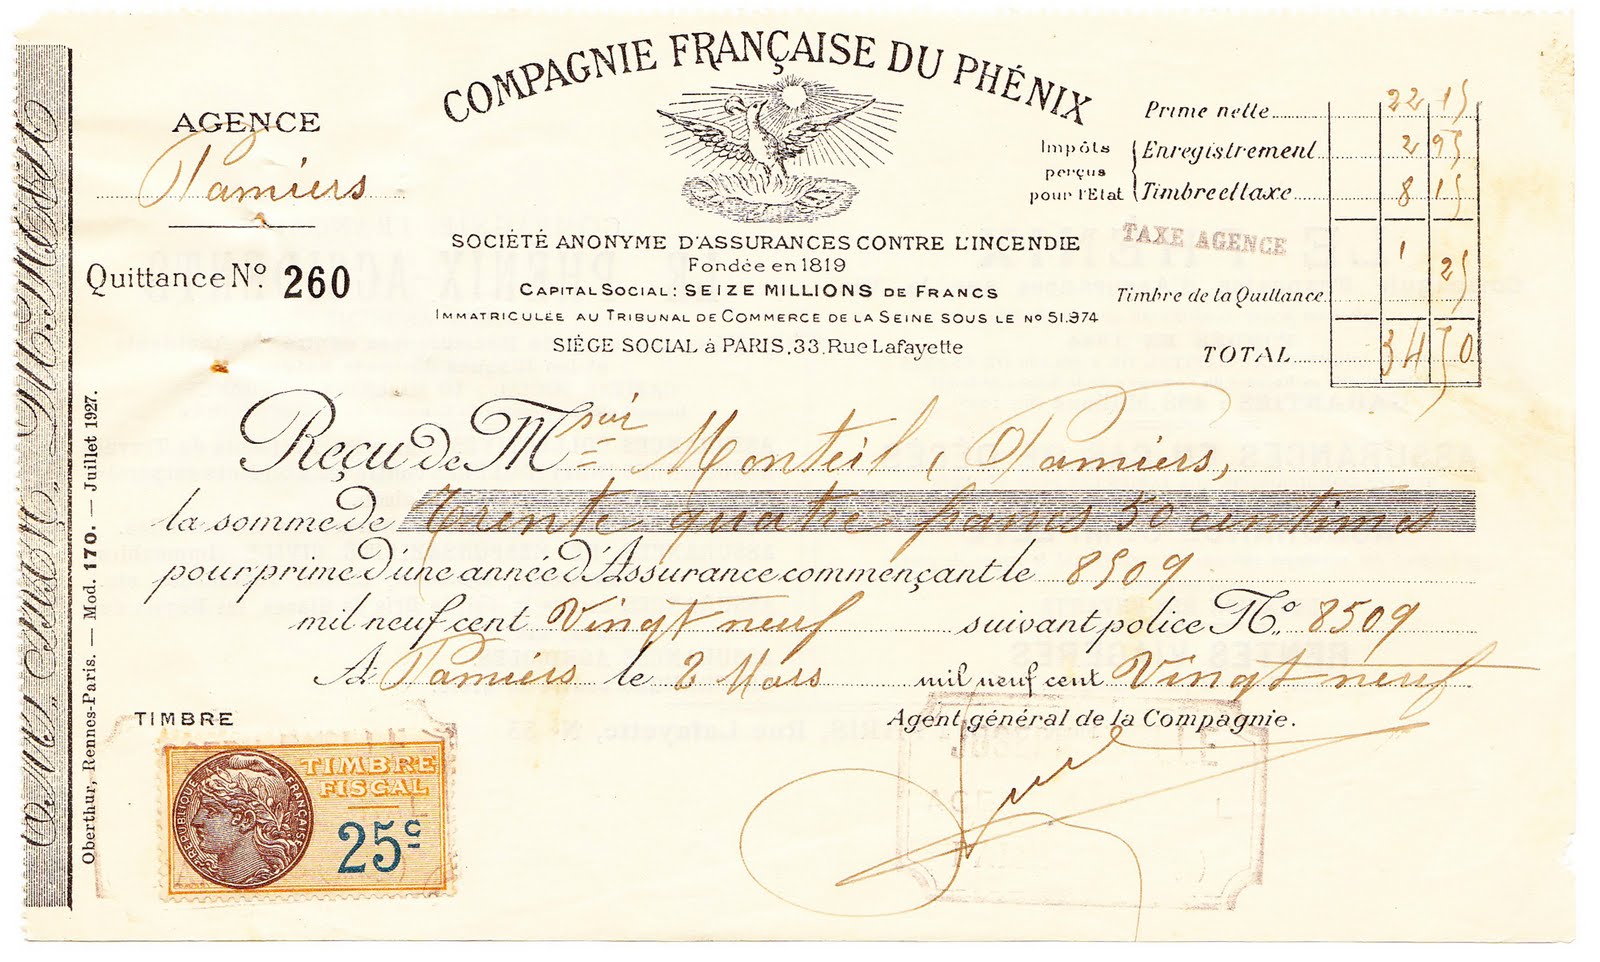 COMPAGNIE FRANÇAISE DU PHÉNIX
AGENCE
Pamiers
Quittance Nº. 260
SOCIÉTÉ ANONYME D'ASSURANCES CONTRE L'INCENDIE
Fondée en 1819
CAPITAL SOCIAL: SEIZE MILLIONS DE FRANCS
IMMATRICULÉE AU TRIBUNAL DE COMMERCE DE LA SEINE SOUS LE Nº 51.974
SIÈGE SOCIAL à PARIS, 33, Rue Lafayette
Prime nette 22 15
Impôts perçus pour l'Etat
Enregistrement 2 95
Timbre et taxe 8 15
TAXE AGENCE 1
Timbre de la Quittance 25
TOTAL 34 50
Reçu de Msieur Monteil, Pamiers,
la somme de Trente quatre francs 50 centimes
pour prime d'une année d'Assurance commençant le 8509
mil neuf cent Vingt neuf suivant police Nº. 8509
A Pamiers le 2 Mars mil neuf cent Vingt neuf
Agent général de la Compagnie.
TIMBRE
TIMBRE
FISCAL
25c
REPUBLIQUE FRANÇAISE
Oberthur, Rennes-Paris. — Mod. 170. — Juillet 1927.